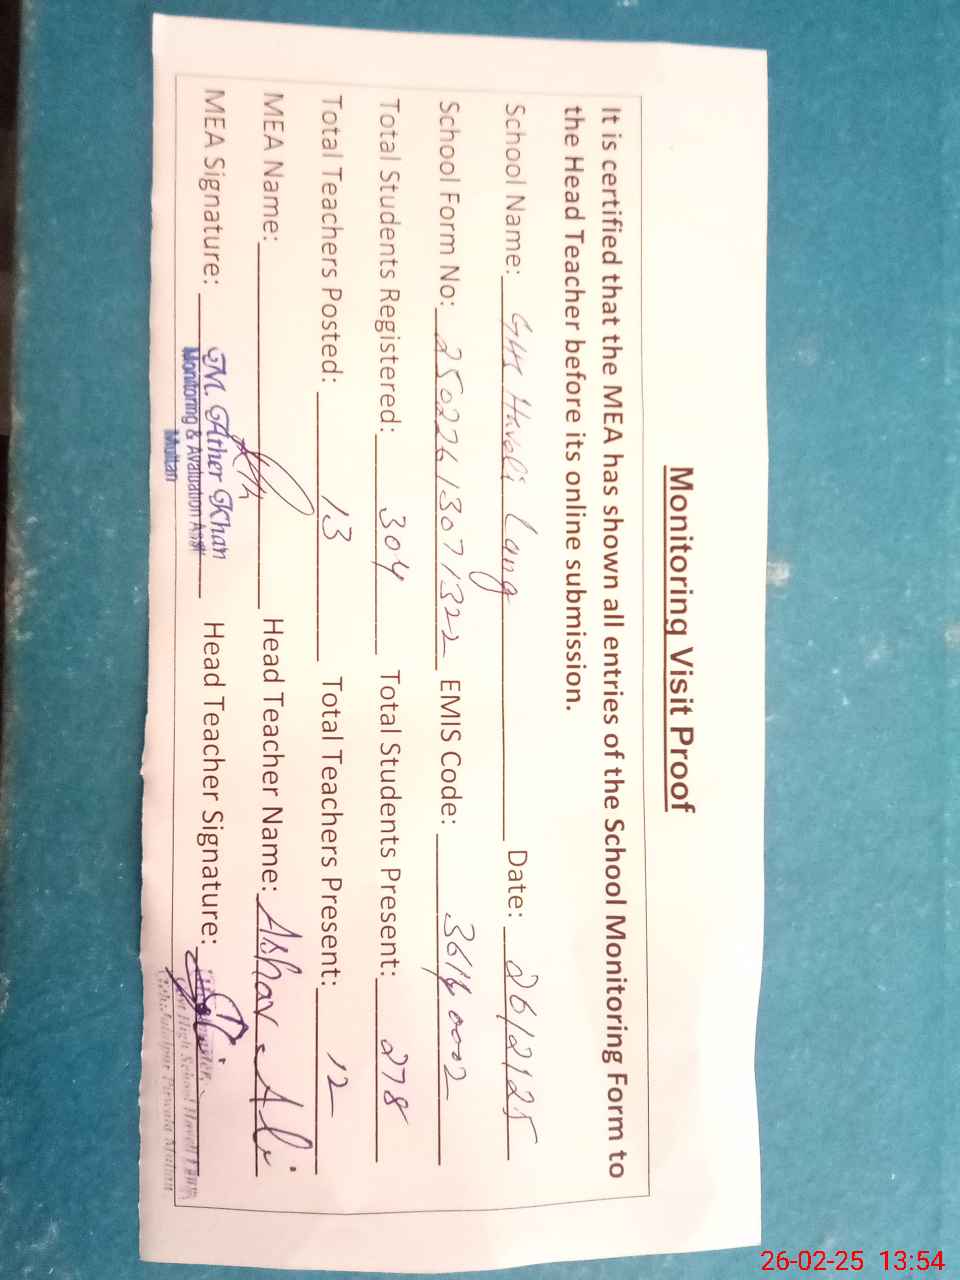 Monitoring Visit Proof
It is certified that the MEA has shown all entries of the School Monitoring Form to
the Head Teacher before its online submission.
School Name: GHS Haveli Lang Date: 26/2/25
School Form No: 25022613071322 EMIS Code: 36140002
Total Students Registered: 304 Total Students Present: 278
Total Teachers Posted: 13 Total Teachers Present: 12
MEA Name: Head Teacher Name: Ali
MEA Signature: M. Ather Khan Head Teacher Signature:
Monitoring & Avaluation Asst
Multan
High School Haveli Lang
Jalalpur Pirwala Multan
26-02-25 13:54